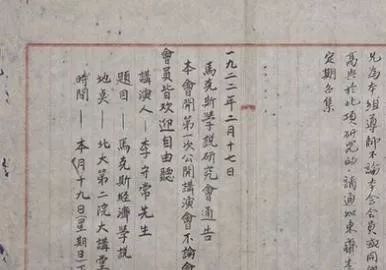 兄為本組導師不論本会会員或同
高興於此項研究的請通知東齋李
定期召集
一九二二年二月十七日
馬克斯學說研究會通告
本會開第一次公開講演會不論會
會員皆歡迎自由聽
講演人—李守常先生
題目—馬克斯經濟學說
地點—北大第二院大講堂
時間—本月十九日(星期日)下